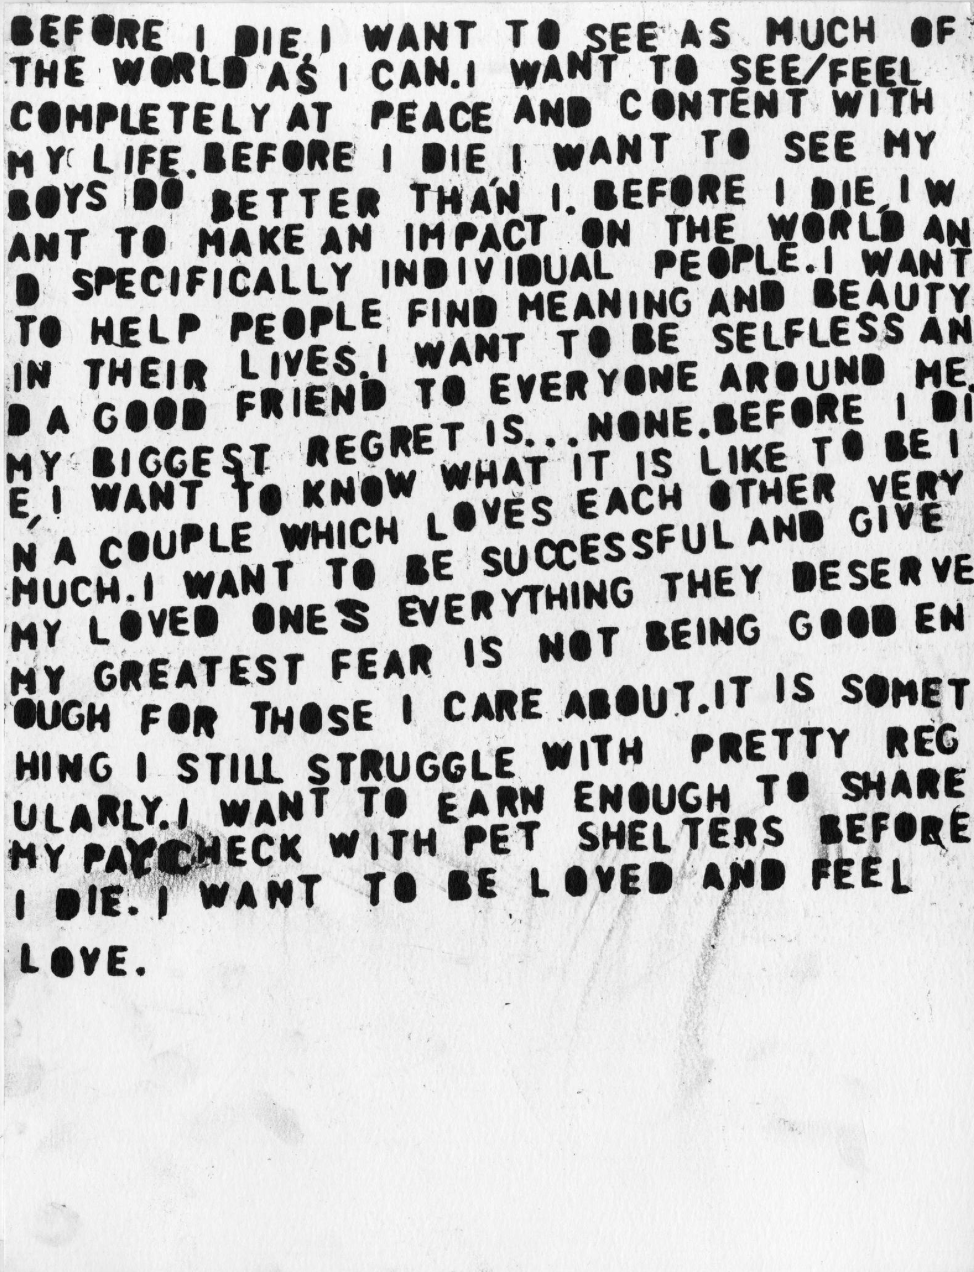 BEFORE I DIE, I WANT TO SEE AS MUCH OF
THE WORLD AS I CAN. I WANT TO SEE/FEEL
COMPLETELY AT PEACE AND CONTENT WITH
MY LIFE. BEFORE I DIE, I WANT TO SEE MY
BOYS DO BETTER THAN I. BEFORE I DIE, I W
ANT TO MAKE AN IMPACT ON THE WORLD AN
D SPECIFICALLY INDIVIDUAL PEOPLE. I WANT
TO HELP PEOPLE FIND MEANING AND BEAUTY
IN THEIR LIVES. I WANT TO BE SELFLESS AN
D A GOOD FRIEND TO EVERYONE AROUND ME.
MY BIGGEST REGRET IS... NONE. BEFORE I DI
E, I WANT TO KNOW WHAT IT IS LIKE TO BE I
N A COUPLE WHICH LOVES EACH OTHER VERY
MUCH. I WANT TO BE SUCCESSFUL AND GIVE
MY LOVED ONE'S EVERYTHING THEY DESERVE
MY GREATEST FEAR IS NOT BEING GOOD EN
OUGH FOR THOSE I CARE ABOUT. IT IS SOMET
HING I STILL STRUGGLE WITH PRETTY REG
ULARLY. I WANT TO EARN ENOUGH TO SHARE
MY PAYCHECK WITH PET SHELTERS BEFORE
I DIE. I WANT TO BE LOVED AND FEEL
LOVE.